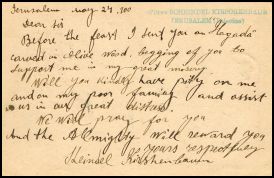 Jerusalem May 27. 100
SCHEINDEL KIRSCHENBAUM
JERUSALEM (Palestine)
Dear Sir
Before the feast I sent you an "Hagada"
carved in Olive Wood, begging of you to
support me in my great misery
Will you kindly have pity on me
and on my poor family and assist
us in our great distress.
We will pray for you
And the Almighty will reward you
Yours respectfully
Sheindel Kirshenbaum